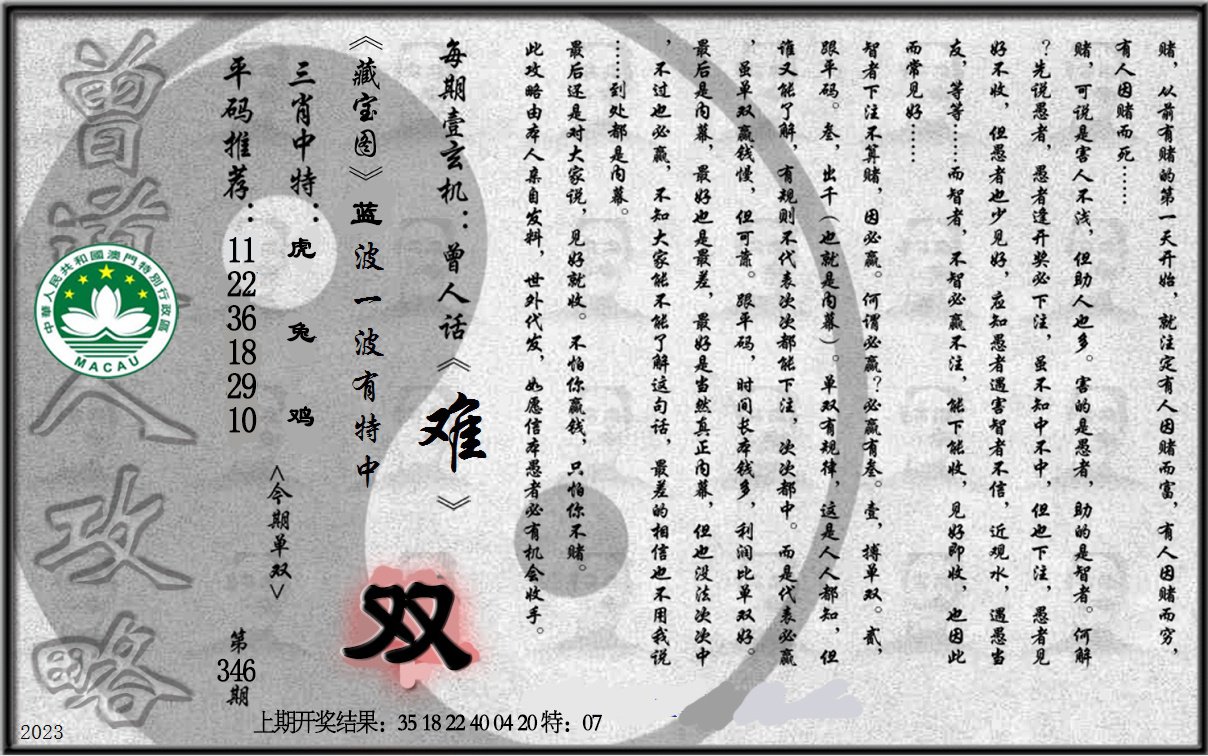 赌，从前有赌的第一天开始，就注定有人因赌而富，有人因赌而穷，
有人因赌而死……
赌，可说是害人不浅，但助人也多。害的是愚者，助的是智者。何解
？先说愚者，愚者逢开奖必下注，虽不知中不中，但也下注，愚者见
好不收，但愚者也少见好，应知愚者遇害智者不信，近观水，遇愚当
友，等等……而智者，不智必赢不注，能下能收，见好即收，也因此
而常见好……
智者下注不算赌，因必赢。何谓必赢？必赢有叁。壹，搏单双。贰，
跟平码。叁，出千（也就是内幕）。单双有规律，这是人人都知，但
谁又能了解，有规则不代表次次都能下注，次次都中。而是代表必赢
，虽单双赢钱慢，但可靠。跟平码，时间长本钱多，利润比单双好。
最后是内幕，最好也是最差，最好是当然真正内幕，但也没法次次中
，不过也必赢，不知大家能不能了解这句话，最差的相信也不用我说
……到处都是内幕。
最后还是对大家说，见好就收。不怕你赢钱，只怕你不赌。
此攻略由本人亲自发料，世外代发，如愿信本愚者必有机会收手。
每期壹玄机：曾人话《难》
《藏宝图》蓝波一波有特中
双
三肖中特：虎 兔 鸡
<今期单双>
平码推荐：11 22 36 18 29 10
第346期
曾道人攻略
中華人民共和國澳門特別行政區
MACAU
上期开奖结果：35 18 22 40 04 20 特：07
2023